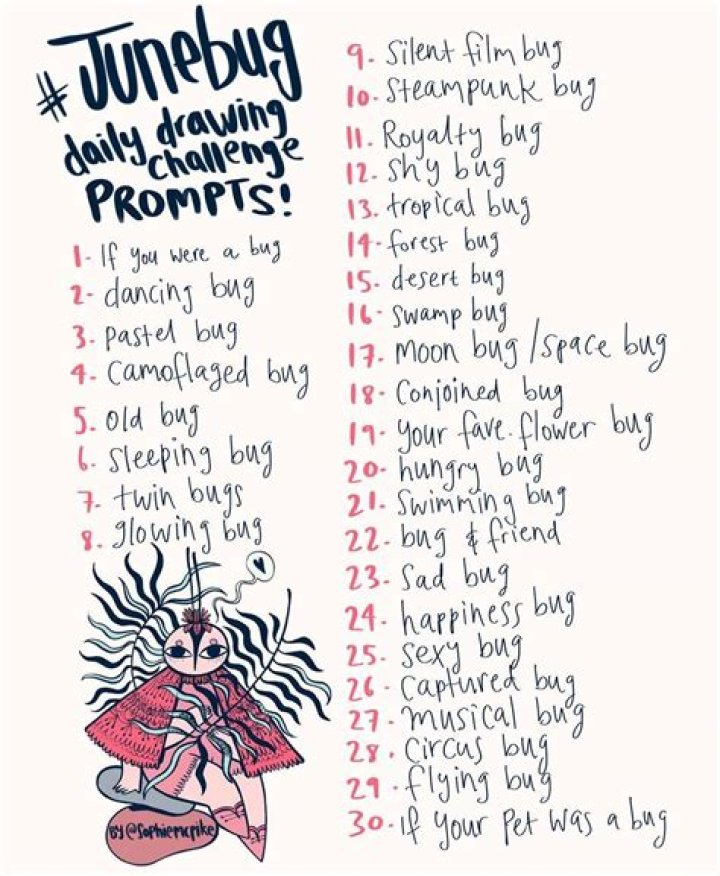 #Junebug
daily drawing
challenge
PROMPTS!
1- If you were a bug
2- dancing bug
3. pastel bug
4. camoflaged bug
5. old bug
6. sleeping bug
7- twin bugs
8. glowing bug
BY @sophiemcpike
9. Silent film bug
10. Steampunk bug
11. Royalty bug
12. shy bug
13. tropical bug
14- forest bug
15. desert bug
16- swamp bug
17. moon bug / space bug
18- Conjoined bug
19- your fave. flower bug
20- hungry bug
21. Swimming bug
22- bug & friend
23- Sad bug
24- happiness bug
25- sexy bug
26- captured bug
27- musical bug
28. circus bug
29. flying bug
30- If your pet was a bug